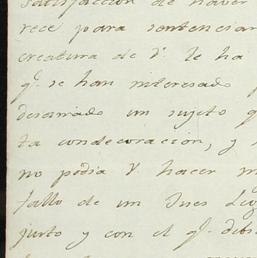 satisfaccion de haver
rece para sentenciar
creatura de V. le ha
q.e se han interesado
desairado un sujeto q
ta condecoracion, y
no podia V hacer m
fallo de un Jues
justo y con el q.e debi